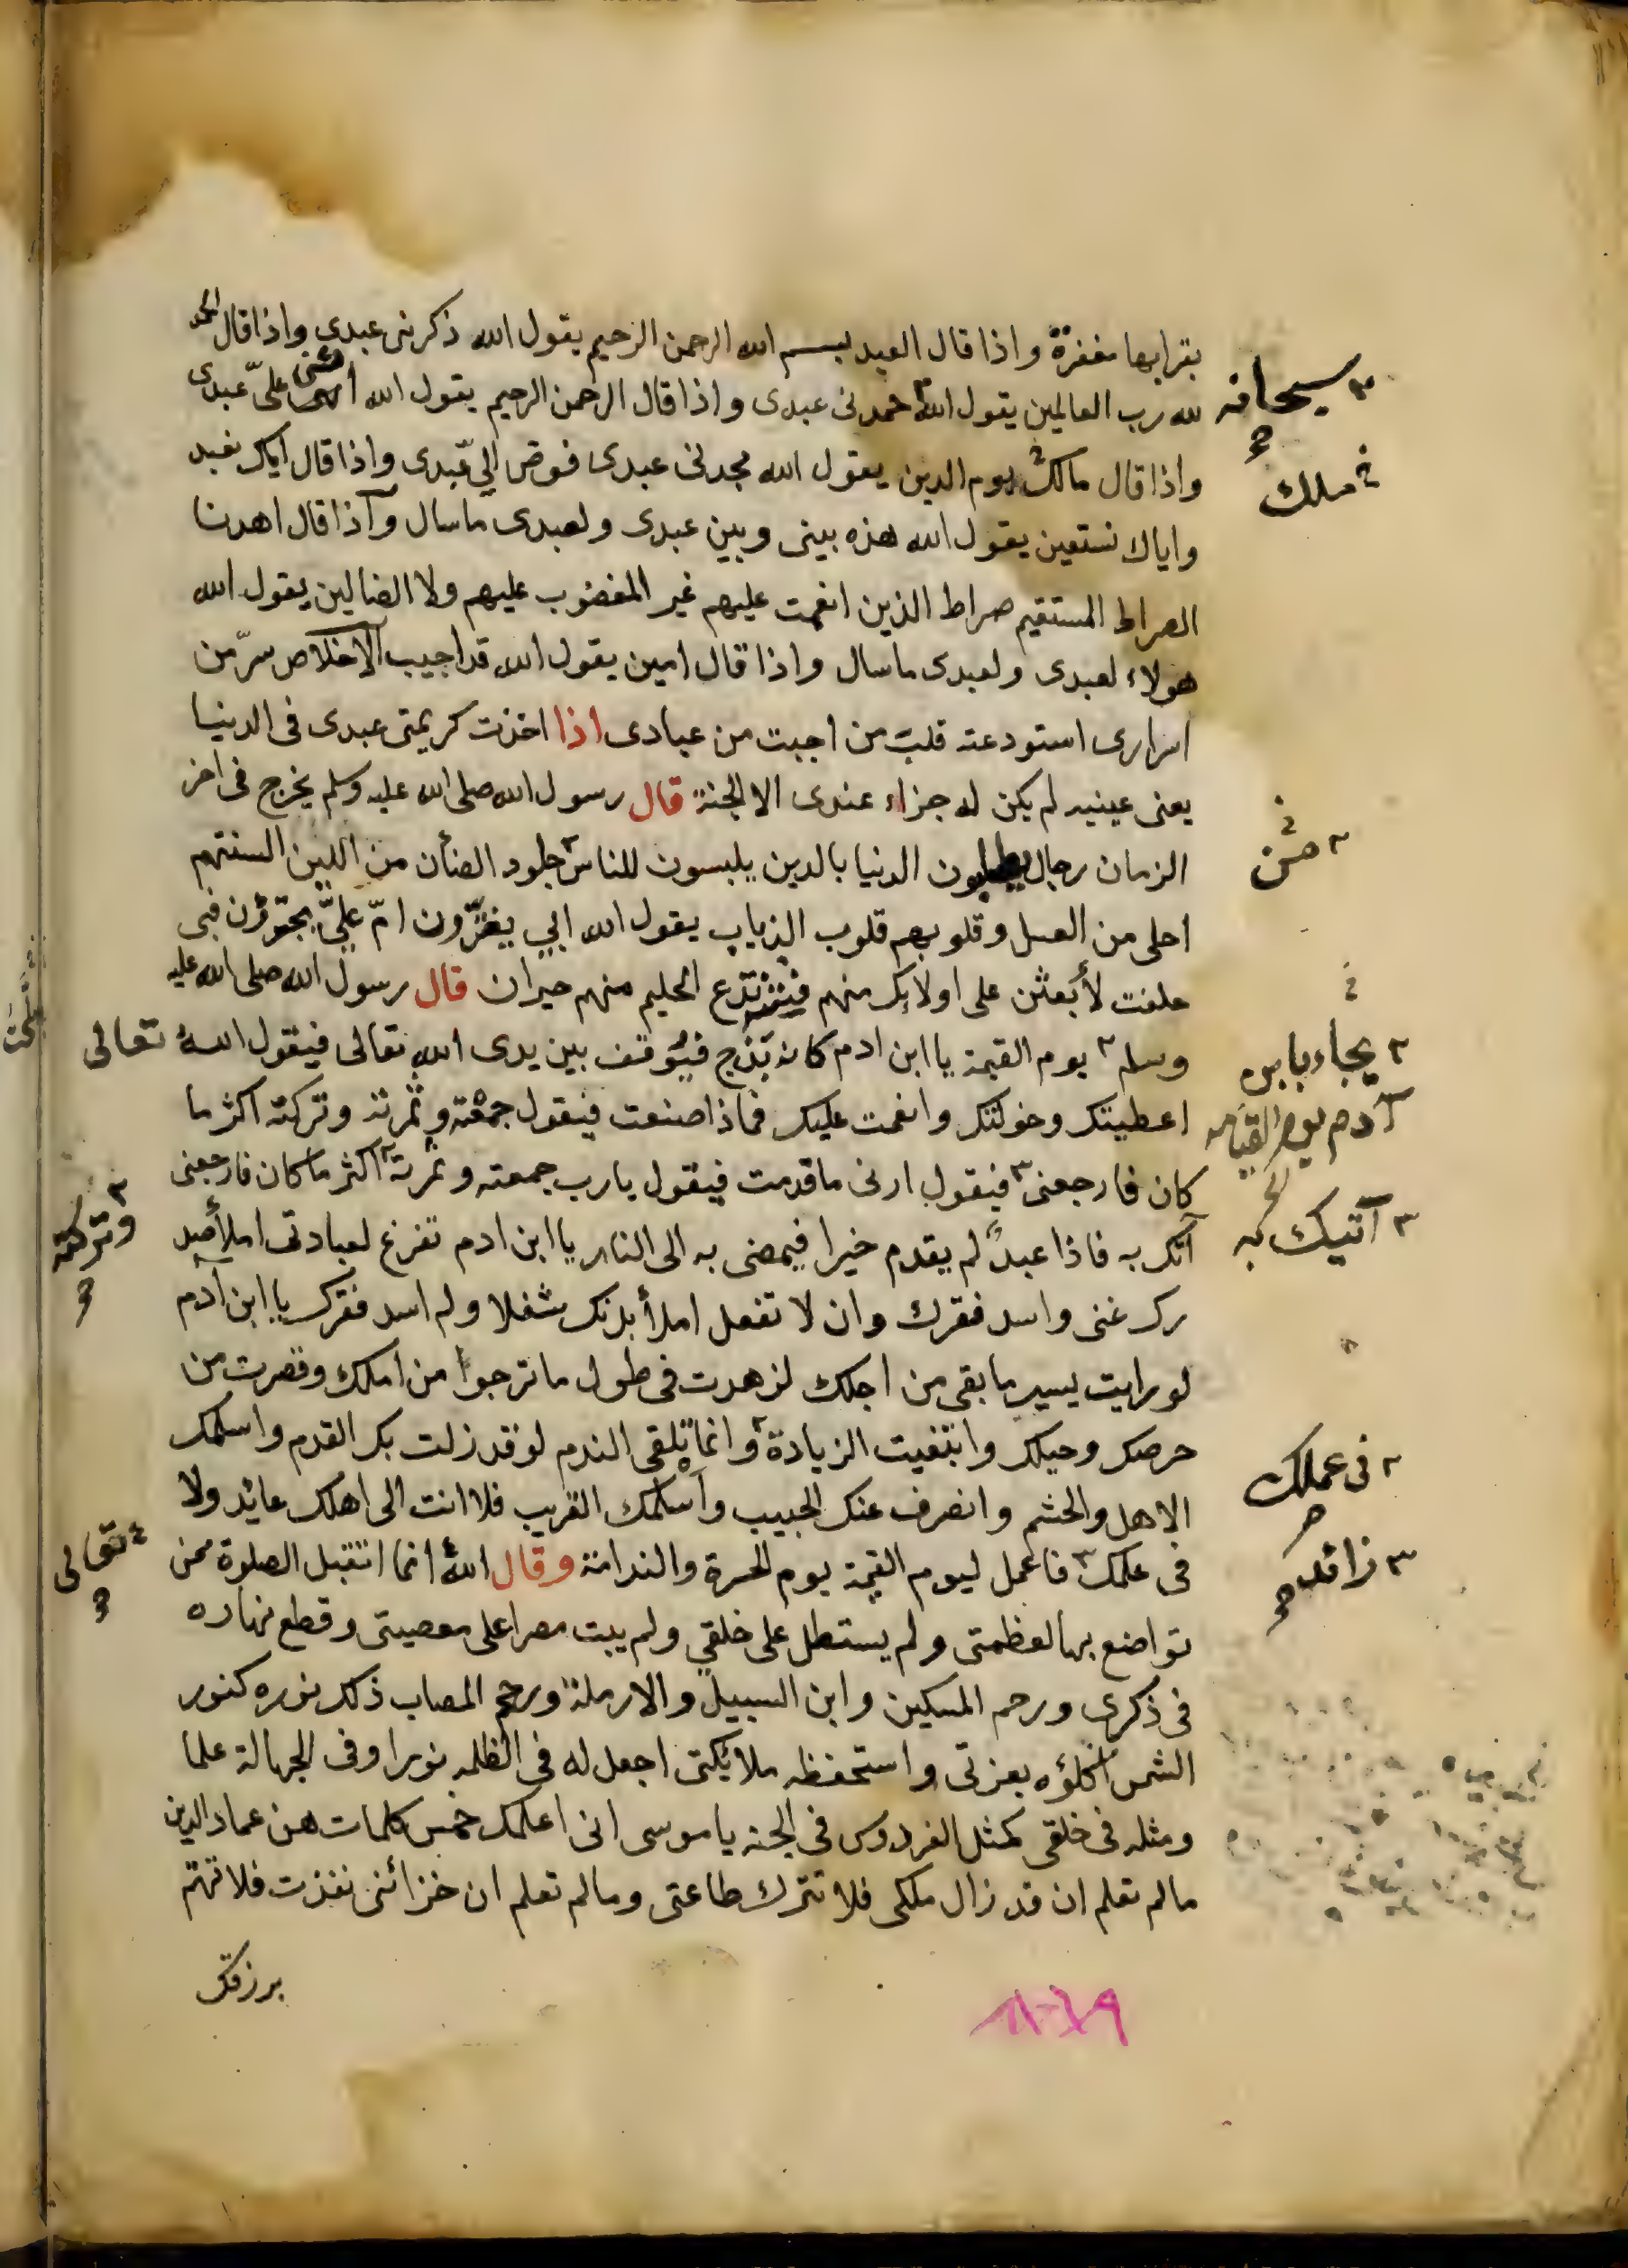 بقرابها مغفرة واذا قال العبد بسم الله الرحمن الرحيم يقول الله ذكرنى عبدى واذا قال الحمد
لله رب العالمين يقول الله حمدنى عبدى واذا قال الرحمن الرحيم يقول الله اثنى علىّ عبدى
سبحانه
واذا قال مالك يوم الدين يقول الله مجدنى عبدى فوض الىّ عبدى واذا قال اياك نعبد
ملك
واياك نستعين يقول الله هذه بينى وبين عبدى ولعبدى ماسال واذا قال اهدنا
الصراط المستقيم صراط الذين انعمت عليهم غير المغضوب عليهم ولا الضالين يقول الله
هولاء لعبدى ولعبدى ماسال واذا قال امين يقول الله قد اجيب الاخلاص سرّ من
اسرارى استودعته قلب من احببت من عبادى اذا اخذت كريمتى عبدى فى الدنيا
يعنى عينيه لم يكن له جزاء عندى الا الجنة قال رسول الله صلى الله عليه وسلم يخرج فى اخر
الزمان رجال يطلبون الدنيا بالدين يلبسون للناس جلود الضأن من اللين السنتهم
احلى من العسل وقلوبهم قلوب الذياب يقول الله ابي يغترّون ام علىّ يجترؤن فبى
حلفت لأبعثن على اولايك منهم الحليم منهم حيران قال رسول الله صلى الله عليه
وسلم يوم القيمة يا ابن ادم كانه بذج فيوقف بين يدى الله تعالى فيقول الله تعالى
يجاء بابن
آدم يوم القيامه
اعطيتك وخولتك وانعمت عليك فماذا صنعت فيقول جمعته وثمرته وتركته اكثر ما
كان فارجعنى فيقول ارنى ما قدمت فيقول يارب جمعته وثمرته اكثر ما كان فارجعنى
آتيك به
وتركته
آتك به فاذا عبدٌ لم يقدم خيرا فيمضى به الى النار يا ابن ادم تفرغ لعبادتى املأ صد
رك غنى واسد فقرك وان لا تفعل املأ بدنك شغلا ولم اسد فقرك يا ابن آدم
لو رايت يسير ما بقى من اجلك لزهدت فى طول ما ترجوا من املك وقصرت من
حرصك وحيلك وابتغيت الزيادة وانما تلقى الندم لو قد زلت بك القدم واسلمك
فى عملك
الاهل والحشم وانصرف عنك الحبيب وأسلمك القريب فلا انت الى اهلك عائد ولا
فى عملك فاعمل ليوم القيمة يوم الحسرة والندامة وقال الله انما اتقبل الصلوة ممن
زائد
تعالى
تواضع بها لعظمتى ولم يستطل على خلقى ولم يبت مصرا على معصيتى وقطع نهاره
فى ذكرى ورحم المسكين وابن السبيل والارملة ورحم المصاب ذلك نوره كنور
الشمس اكلؤه بعزتى واستحفظه ملائكتى اجعل له فى الظلمه نورا وفى الجهالة علما
ومثله فى خلقى كمثل الفردوس فى الجنه يا موسى انى اعلمك خمس كلمات هن عماد الدين
مالم تعلم ان قد زال ملكى فلا تترك طاعتى ومالم تعلم ان خزائنى نفذت فلا تهتم
برزقك